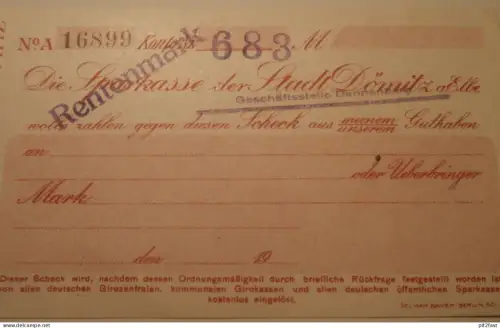 No A 16899 Konto No 683 M
Die Sparkasse der Stadt Dömitz a/Elbe
Rentenmark
Geschäftsstelle
wolle zahlen gegen diesen Scheck aus meinem unserem Guthaben
an
oder Ueberbringer
Mark
den 19
Dieser Scheck wird, nachdem dessen Ordnungsmäßigkeit durch briefliche Rückfrage festgestellt worden ist
von allen deutschen Girozentralen, kommunalen Girokassen und allen deutschen öffentlichen Sparkass
kostenlos eingelöst.
pit2fast